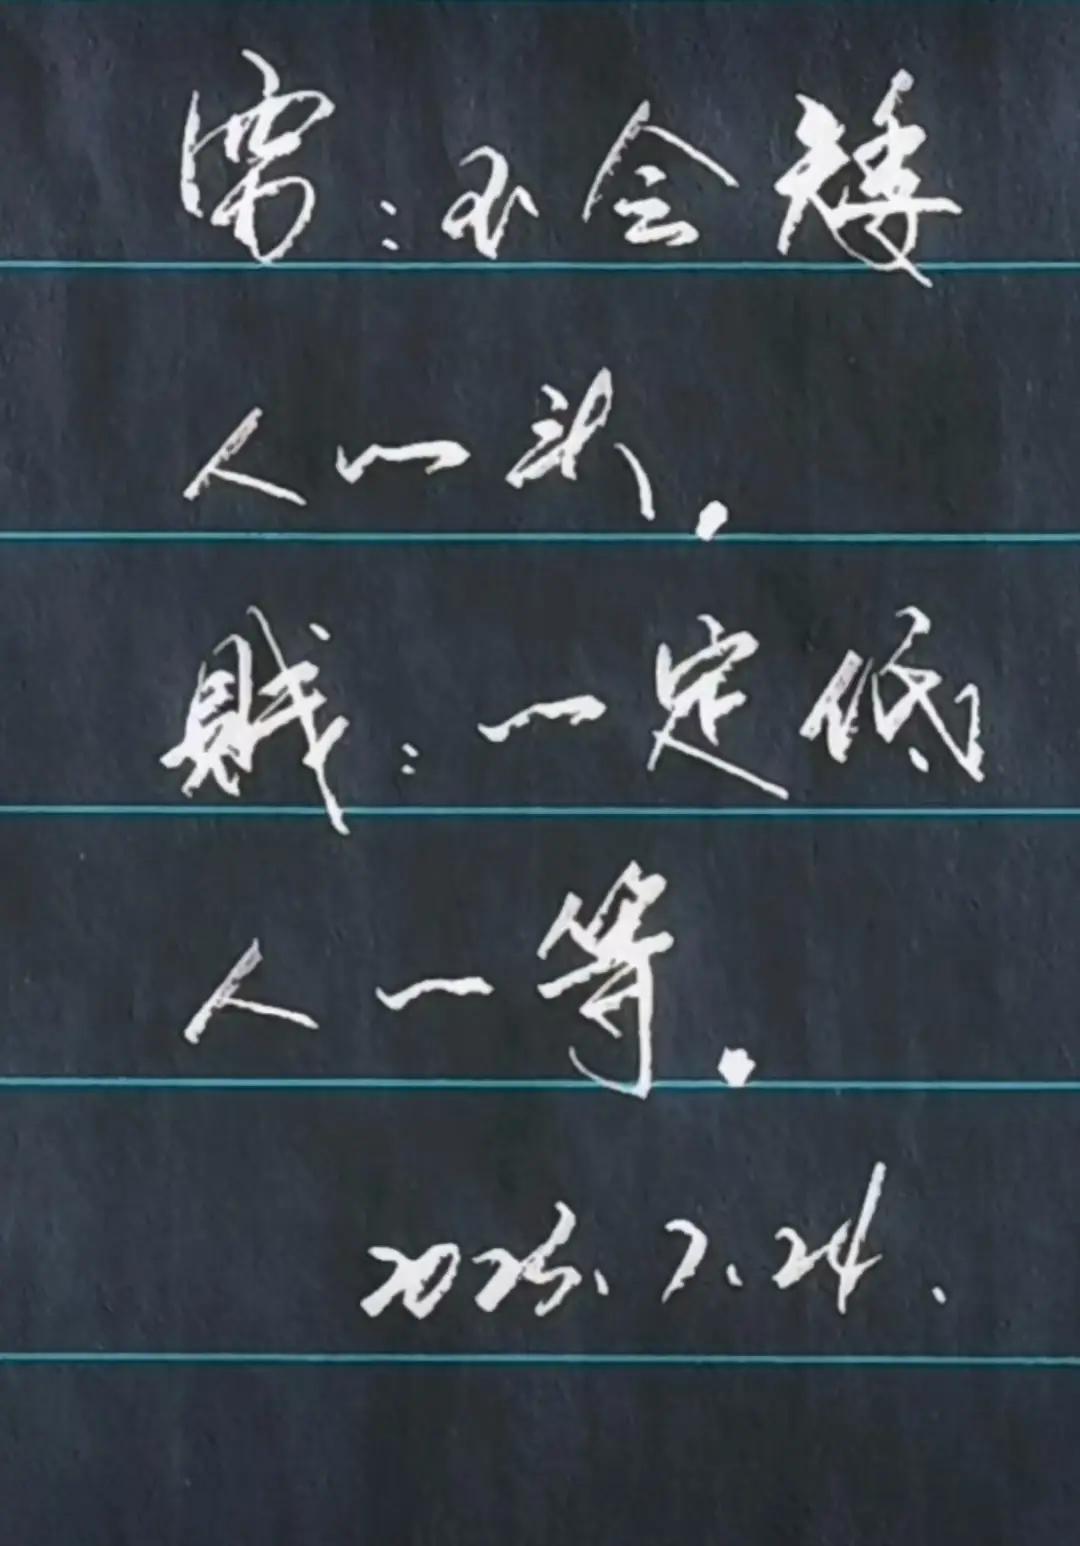 穷:不会矮
人一头.
贱:一定低
人一等.
2025.7.24.